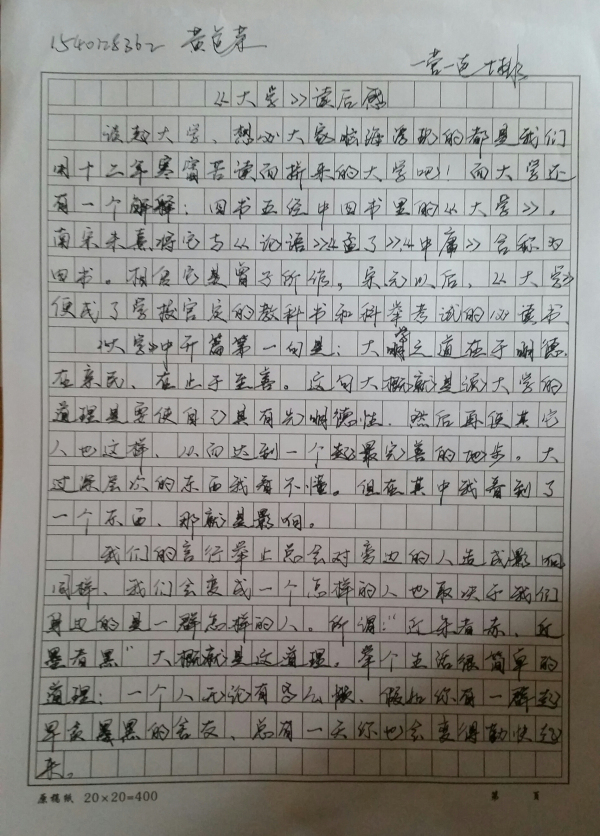 1540128362 黄
一营一连 排
《大学》读后感
谈起大学、想必大家脑海浮现的都是我们
用十二年寒窗苦读而拼来的大学吧！而大学还
有一个解释：四书五经中四书里的《大学》。
南宋朱熹将它与《论语》《孟子》《中庸》合称为
四书。相传它是曾子所作。宋元以后，《大学》
便成了学校官定的教科书和科举考试的必读书、
《大学》中开篇第一句是：大学之道在于明德
在亲民、在止于至善。这句大概就是说大学的
道理是要使自己具有先明德性、然后再使其它
人也这样、从而达到一个最完善的地步。太
过深层次的东西我看不懂。但在其中我看到了
一个东西、那就是影响。
我们的言行举止总会对旁边的人造成影响
同样、我们会变成一个怎样的人也取决于我们
身边的是一群怎样的人。所谓："近朱者赤、近
墨者黑"大概就是这道理。举个生活很简单的
道理：一个人无论有多么懒、假如你有一群起
早贪黑的舍友、总有一天你也会变得勤快起
来。
原稿纸 20×20=400 第 页